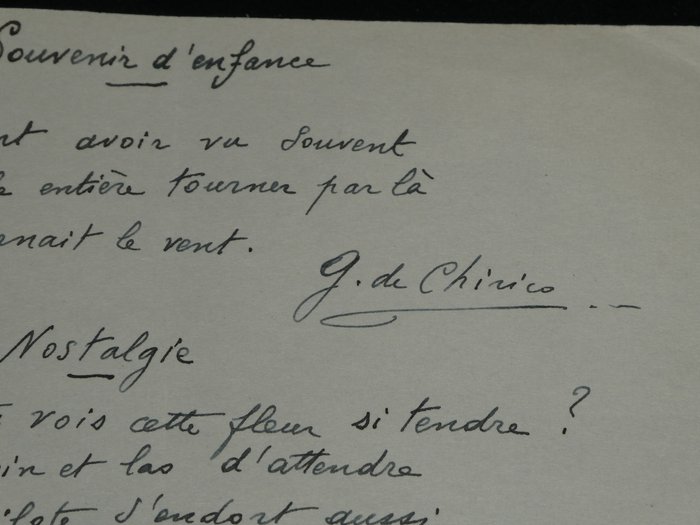 Souvenir d'enfance
avoir vu souvent
entière tourner par là
nait le vent.
G. de Chirico
Nostalgie
vois cette fleur si tendre ?
et las d'attendre
s'endort aussi